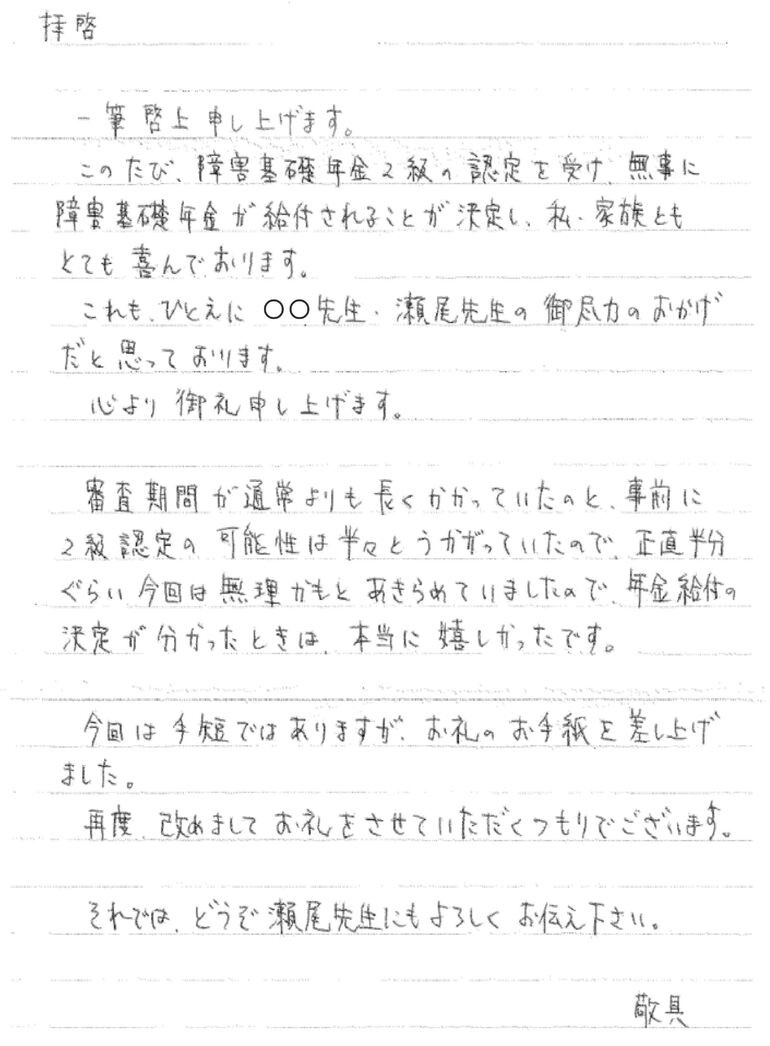 拝啓
一筆啓上申し上げます。
このたび、障害基礎年金2級の認定を受け、無事に
障害基礎年金が給付されることが決定し、私・家族とも
とても喜んでおります。
これも、ひとえに 〇〇先生・瀬尾先生の御尽力のおかげ
だと思っております。
心より御礼申し上げます。
審査期間が通常よりも長くかかっていたのと、事前に
2級認定の可能性は半々とうかがっていたので、正直半分
ぐらい今回は無理かもとあきらめていましたので、年金給付の
決定が分かったときは、本当に嬉しかったです。
今回は手短ではありますが、お礼のお手紙を差し上げ
ました。
再度、改めましてお礼をさせていただくつもりでございます。
それでは、どうぞ瀬尾先生にもよろしくお伝え下さい。
敬具